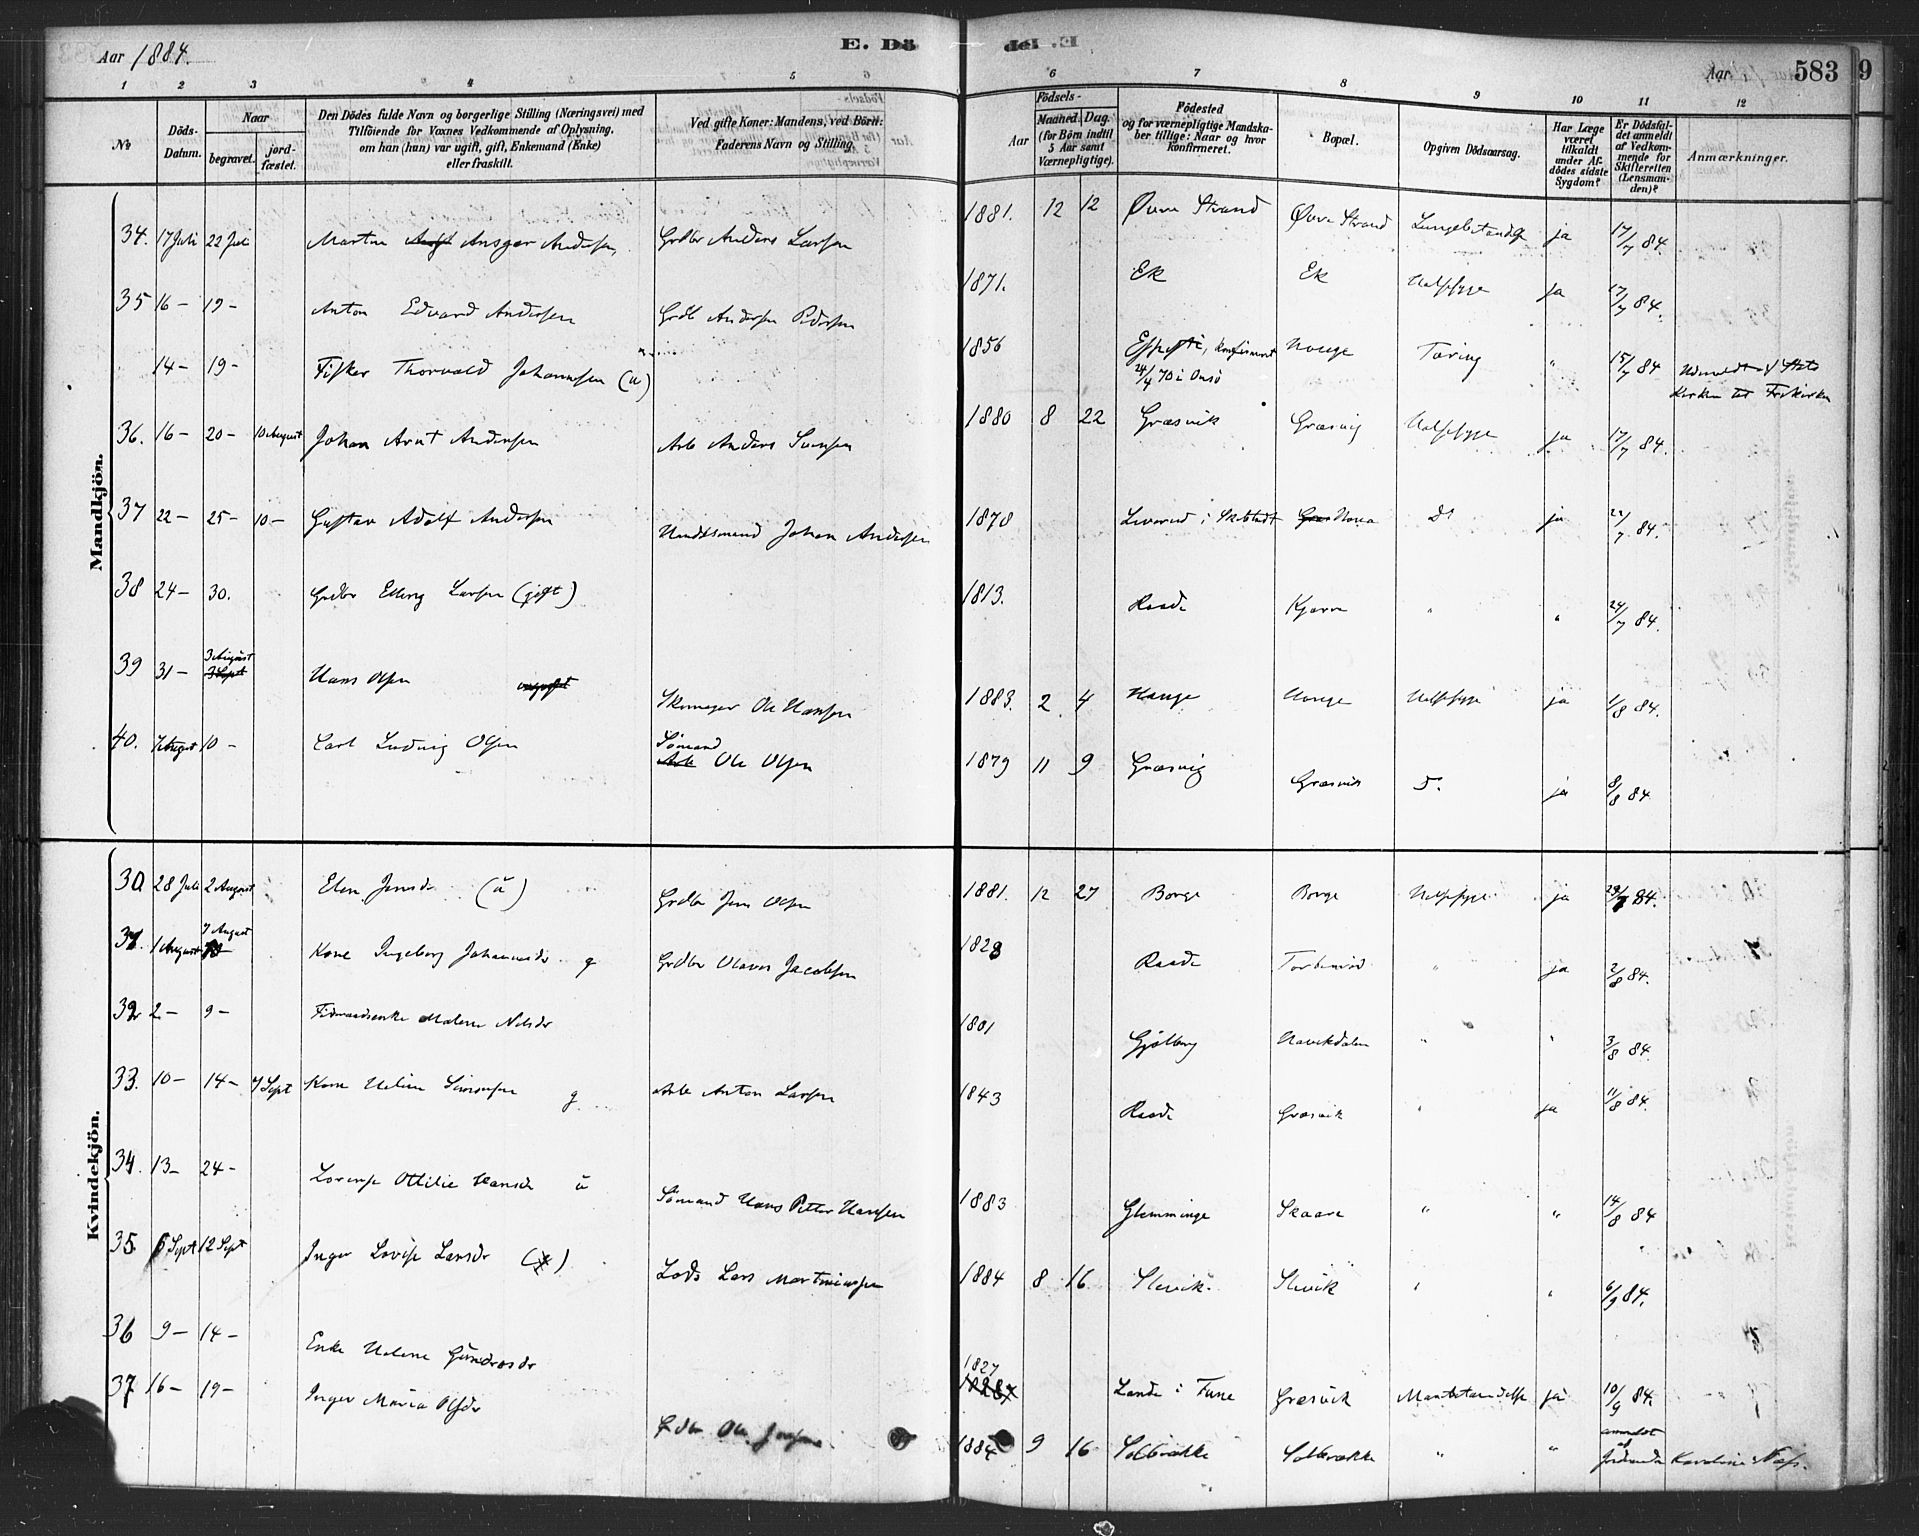 Aar 1884.
E. Dö
del E
Aar
583
9
1 2 3 4 5 6 7 8 9 10 11 12
No
Döds-Datum.
Naar
begravet.
jord-fæstet.
Den Dödes fulde Navn og borgerlige Stilling (Næringsvei) med
Tilföiende for Voxnes Vedkommende af Oplysning.
om han (hun) var ugift, gift, Enkemand (Enke)
eller fraskilt.
Ved gifte Koner: Mandens, ved Börn:
Faderens Navn og Stilling.
Födsels-
Aar
Maaned. Dag.
(for Börn indtil
5 Aar samt
Værnepligtige).
Födested
og for værnepligtige Mandska-
ber tillige: Naar og hvor
konfirmeret.
Bopæl.
Opgiven Dödsaarsag.
Har Læge
været
tilkaldt
under Af-
dödes sidste
Sygdom?
Er Dödsfal-
det anmeldt
af Vedkom-
mende for
Skifteretten
(Lensman-
den)?
Anmærkninger.
Mandkjön.
34. 17 Juli 22 Juli Martin Ansgar Andersen, Grdbr Anders Larsen 1881. 12 12 Øvre Strand Øvre Strand ja 17/7 84.
35 16 - 19 - Anton Edvard Andersen Grdb Andersen Pedersen 1871. Ek Ek Halssyge ja 17/7 84.
14 - 19 - Fisker Thorvald Johannesen (u) 1856 konfirmeret 24/4 70 i Onsö Houge Tæring " 15/7 84 Udmeldt af Stats
Kirken til Frikirken
36. 16 - 20 - 10 August Johan Arnt Andersen Arb Anders Svensen 1880 8 22 Græsvik Græsvig Halssyge ja 17/7 84.
37 22 - 25 - 10 - Gustav Adolf Andersen Johan Andersen 1878 i Skibtvedt Do ja 22/7 84.
38 24 - 30. Grdbr Elling Larsen (gift) 1813. Raade Kjærre " " 24/7 84.
39 31 - 3 August 3 Sept Hans Olsen Skomager Ole Hansen 1883. 2 4 Hauge Houge Halssyge ja 1/8 84.
40. 7 August 10 - Carl Ludvig Olsen Sömand Arb Ole Olsen 1879 11 9 Græsvig Græsvik D. ja 8/8 84
Kvindekjön.
30 28 Juli 2 August Elen Jensdr (u) Grdbr Jens Olsen 1881. 12 27 Borge Borge Halssyge ja 29/7 84.
31. 1 August 7 August Kone Ingeborg Johannesdr g Grdbr Olaves Jacobsen 1823 Raade Torkelsröd " ja 2/8 84.
32 2 - 9 - Malene Nilsdr 1801 Gjölberg " " 3/8 84.
33. 10 - 14 - 7 Sept Kone Helene Simonsen g Arb Anton Larsen 1843 Raade Græsvik " ja 11/8 84.
34. 13 - 24 - Lorense Ottilie Hansdr u Sömand Hans Petter Hansen 1883 Glemminge Skaare " " 14/8 84
35. 5 Sept 12 Sept Inger Lovise Larsdr Lods Lars Martiniussen 1884 8 16 Slevik. Slevik " " 6/9 84.
36 9 - 14 - Enke Helene Gundersdr 1827 Lande i Tune Græsvik ja 10/9 84.
37 16 - 19 - Inger Maria Olsdr Grdbr Ole Jensen 1884 9 16 Solbrække Solbrække " " anmeldt af Jordemoder Karoline Næss.